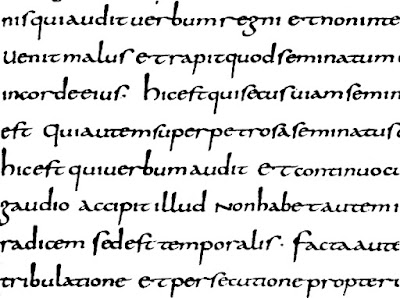 nisqui audit uerbum regni et non inte
uenit malus et rapit quod seminatum
in corde eius. hic est qui secus uiam semin
est qui autem super petrosa seminatus
hic est qui uerbum audit et continuo cu
gaudio accipit illud non habet autem i
radicem sed est temporalis. facta aute
tribulatione et persecutione propter